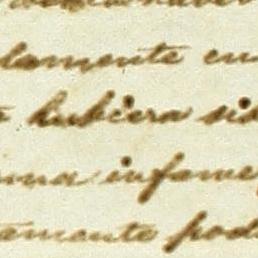 lamente en
hubiera sid
ma infame,
amente pod